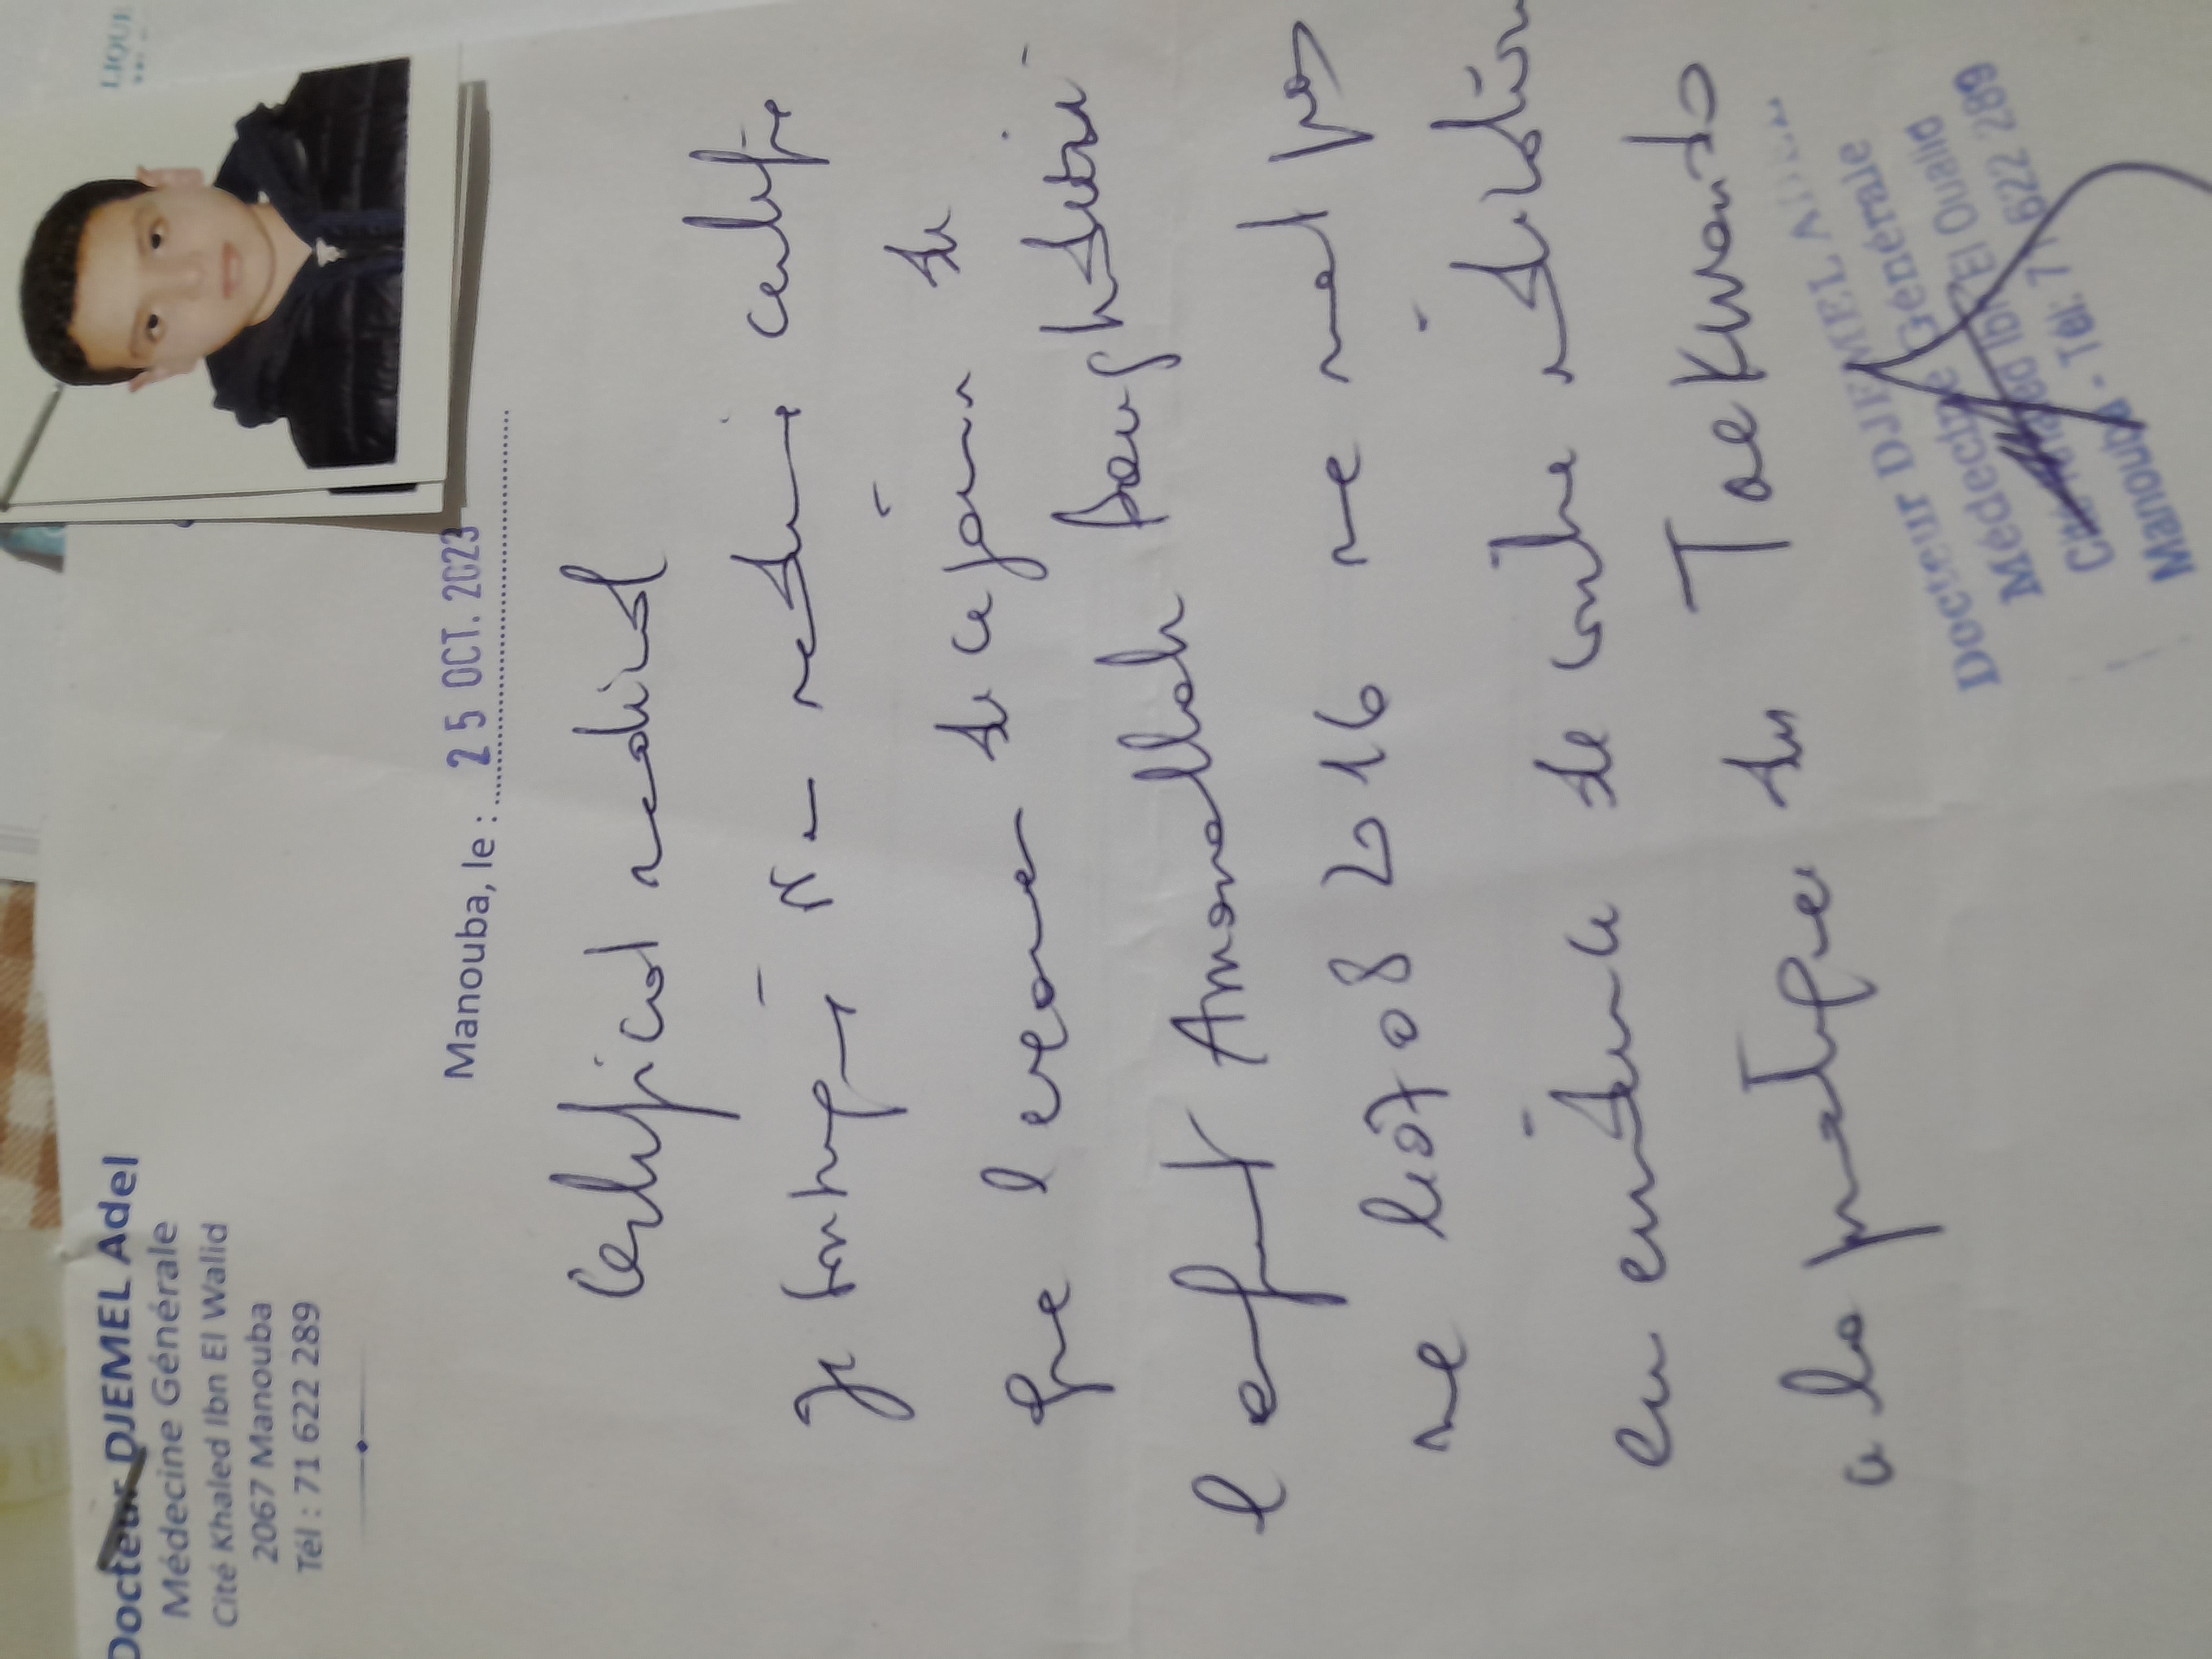 Docteur DJEMEL Adel
Médecine Générale
Cité Khaled Ibn El Walid
2067 Manouba
Tél : 71 622 289
LIQUE
Manouba, le : 25 OCT. 2023
Certificat médical
Je médecin certifie
que l'examen de ce jour de
l'enfant Amenallah
né le 07 08 2016 ne met pas
en évidence de contre indication
a la pratique du TaeKwondo
Docteur DJEMEL
Médecine Générale
Cité Khaled Ibn El Oualid
Manouba - Tél: 71 622 289